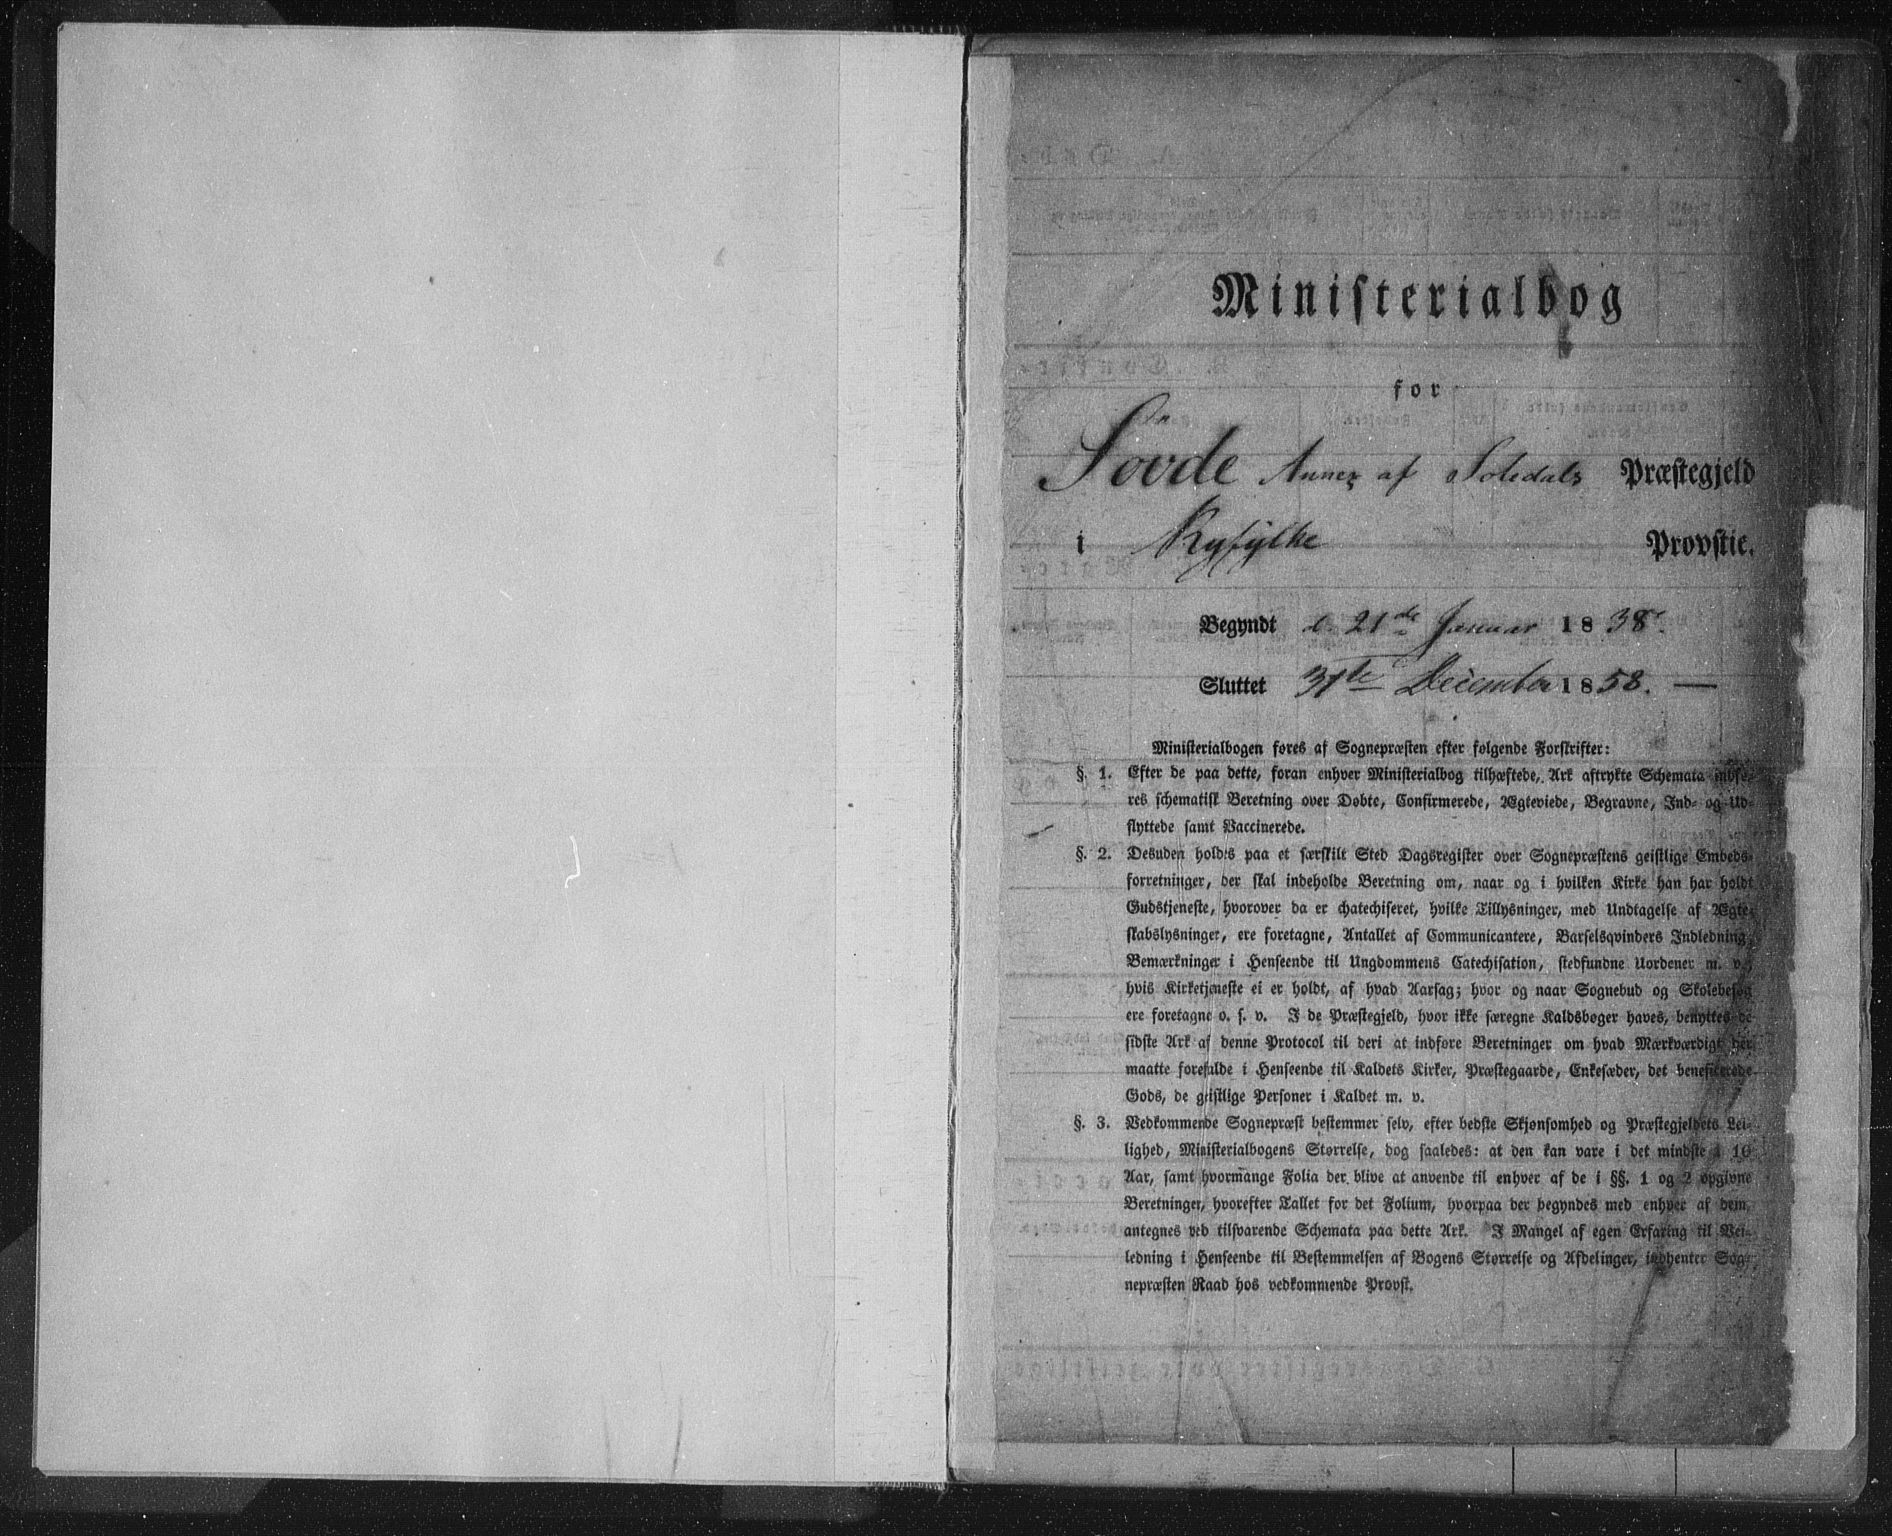 Ministerialbog
for
Sovde Annex af Soledals Præstegjeld
i Ryfylke Provstie.
Begyndt d. 21de Januar 1838.
Sluttet 31te December 1858. —
Ministerialbogen føres af Sognepræsten efter følgende Forskrifter:
§. 1. Efter de paa dette, foran enhver Ministerialbog tilhæftede, Ark aftrykte Schemata indfø-
res schematisk Beretning over Døbte, Confirmerede, Ægteviede, Begravne, Ind- og Ud-
flyttede samt Vaccinerede.
§. 2. Desuden holdes paa et særskilt Sted Dagsregister over Sognepræstens geistlige Embeds-
forretninger, der skal indeholde Beretning om, naar og i hvilken Kirke han har holdt
Gudstjeneste, hvorover da er chatechiseret, hvilke Tillysninger, med Undtagelse af Ægte-
skabslysninger, ere foretagne, Antallet af Communicantere, Barselqvinders Indledning,
Bemærkninger i Henseende til Ungdommens Catechisation, stedfundne Uordener m. v.,
hvis Kirketjeneste ei er holdt, af hvad Aarsag; hvor og naar Sognebud og Skolebesøg
ere foretagne o. s. v. I de Præstegjeld, hvor ikke særegne Kaldsbøger haves, benyttes de
sidste Ark af denne Protocol til deri at indføre Beretninger om hvad Mærkværdigt der
maatte forefalde i Henseende til Kaldets Kirker, Præstegaarde, Enkesæder, det beneficerede
Gods, de geistlige Personer i Kaldet m. v.
§. 3. Vedkommende Sognepræst bestemmer selv, efter bedste Skjønsomhed og Præstegjeldets Lei-
lighed, Ministerialbogens Størrelse, dog saaledes: at den kan vare i det mindste i 10
Aar, samt hvormange Folia der blive at anvende til enhver af de i §§. 1 og 2 opgivne
Beretninger, hvorefter Tallet for det Folium, hvorpaa der begyndes med enhver af dem,
antegnes ved tilsvarende Schemata paa dette Ark. I Mangel af egen Erfaring til Vei-
ledning i Henseende til Bestemmelsen af Bogens Størrelse og Afdelinger, indhenter Sog-
nepræsten Raad hos vedkommende Provst.